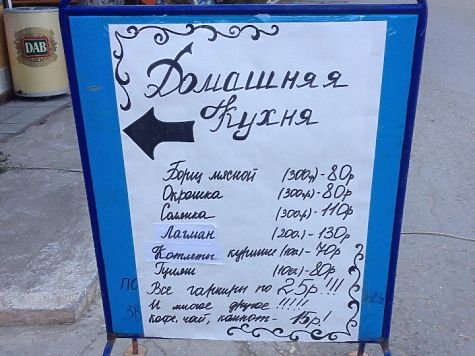 DAB
Домашняя
Кухня
Борщ мясной (300г) - 80р
Окрошка (300г) - 80р
Солянка (300г) - 110р
Лагман (200г) - 130р
Котлеты куриные (110г) - 70р
Гуляш (110г) - 80р
Все гарниры по 25р!!!
И многое другое!!!!!
кофе, чай, компот - 15р!